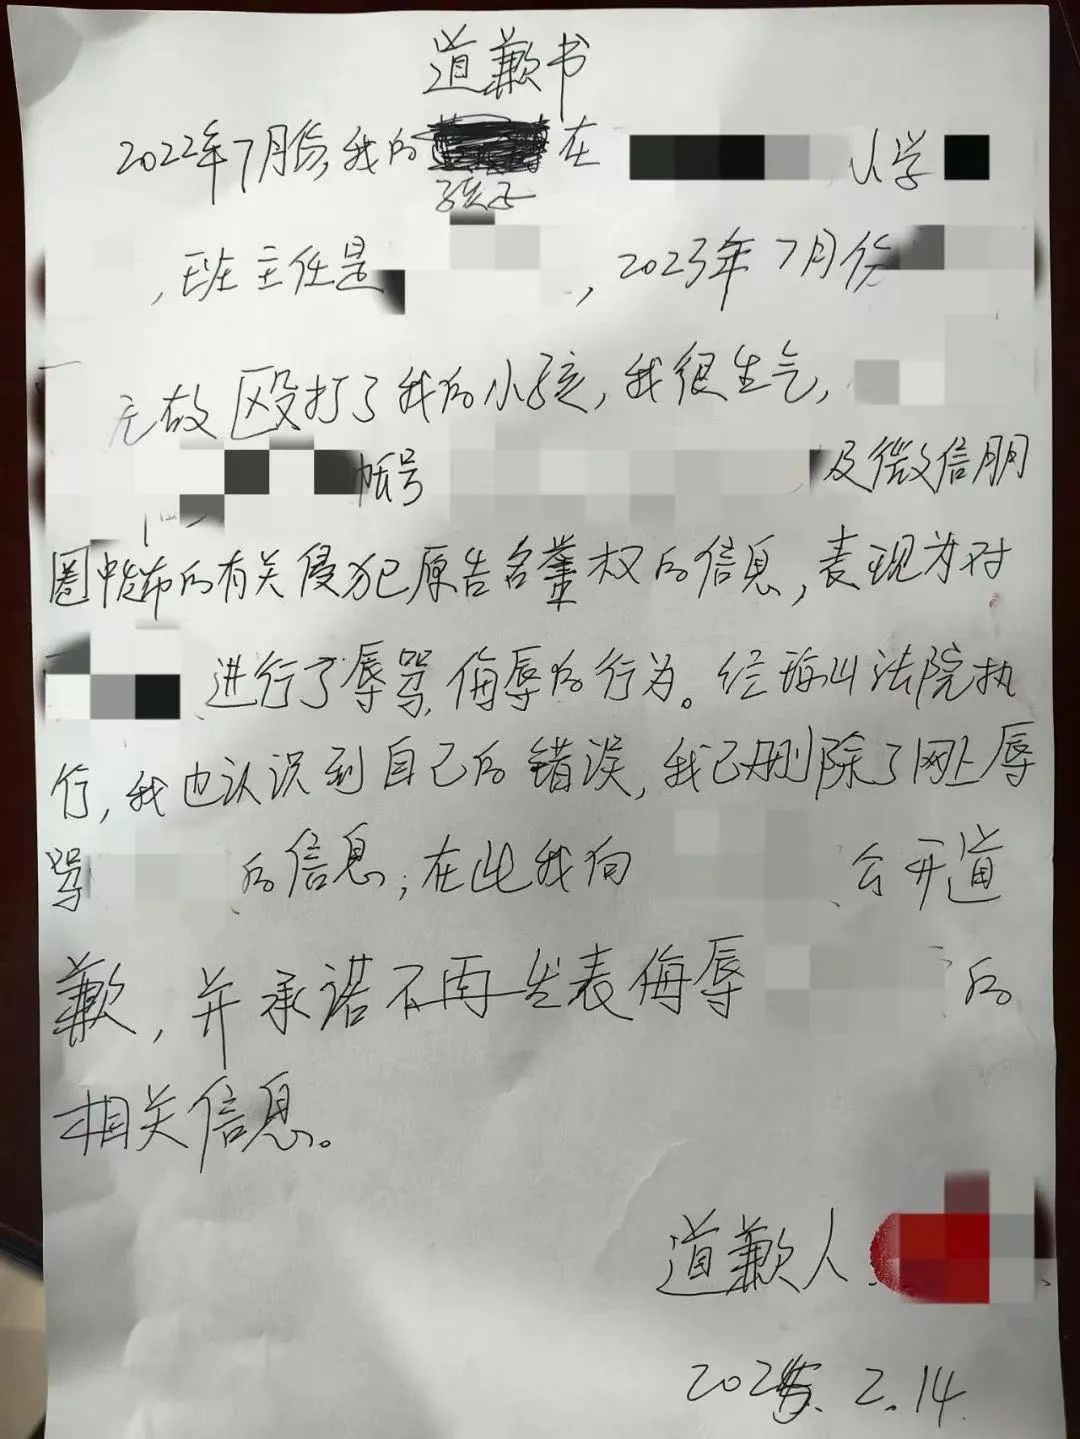 道歉书
2022年7月份,我的 在 小学
孩子
,班主任是 ,2023年7月份
无故殴打了我的小孩,我很生气,
帐号 及微信朋
圈中发布的有关侵犯原告名誉权的信息,表现为对
进行了辱骂,侮辱的行为。经 法院执
行,我也认识到自己的错误,我已删除了网上辱
骂 的信息;在此我向 公开道
歉,并承诺不再发表侮辱 的
相关信息。
道歉人
2025.2.14